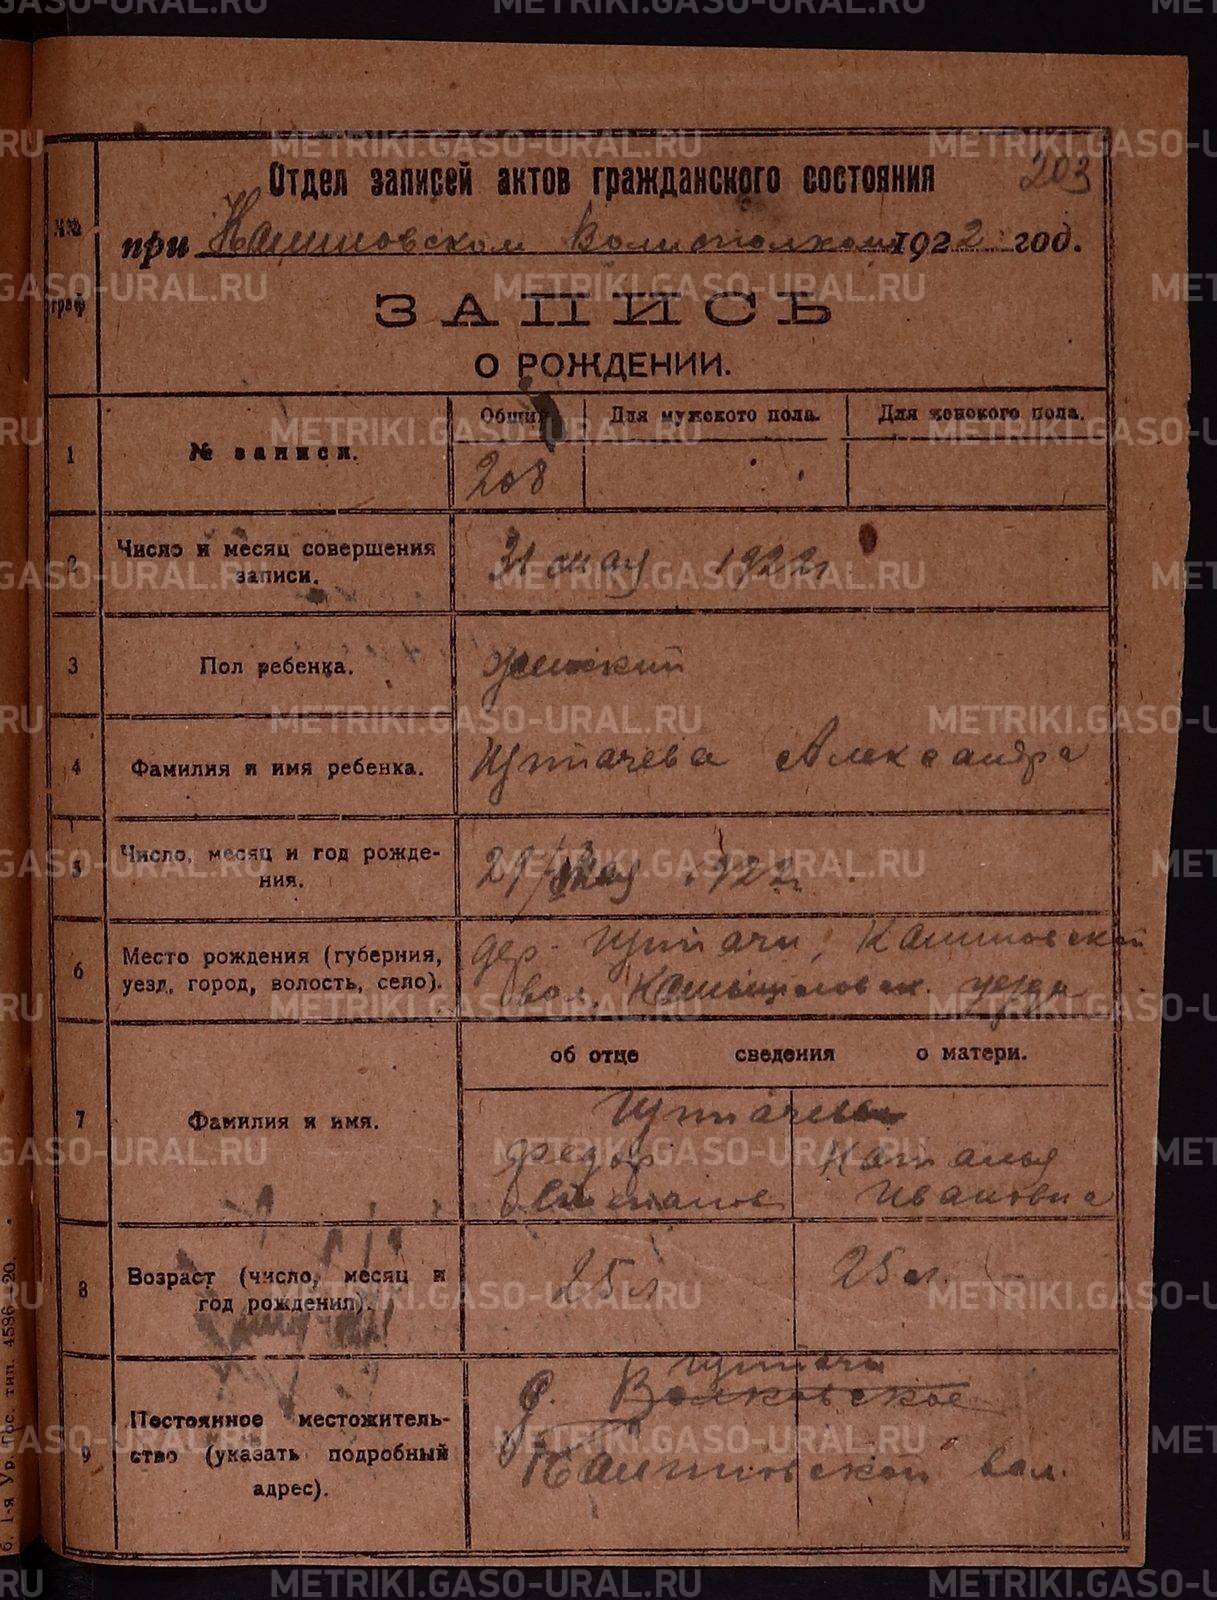 203
Отдел записей актов гражданского состояния
№№ граф
при Кашиновском Волисполкоме 1922 год.
ЗАПИСЬ
О РОЖДЕНИИ.
1 № записи. Общий Для мужского пола. Для женского пола.
208
2 Число и месяц совершения
записи.
31 мая 1922 г
3 Пол ребенка. женский
4 Фамилия и имя ребенка. Щипачева Александра
5 Число, месяц и год рожде-
ния.
29/мая 1922 г.
6 Место рождения (губерния,
уезд, город, волость, село).
дер. Щипачи, Кашиновской
вол. Камышловск. уезда
об отце сведения о матери.
7 Фамилия и имя.
Щипачевы
Федор Наталья
Степанов Ивановна
8 Возраст (число, месяц и
год рождения).
25 л 25 л.
9 Постоянное местожитель-
ство (указать подробный
адрес).
Щипачи
д. Волковское
Кашиновской вол.
б. 1-я Ур. гос. тип. 4586—20.
METRIKI.GASO-URAL.RU